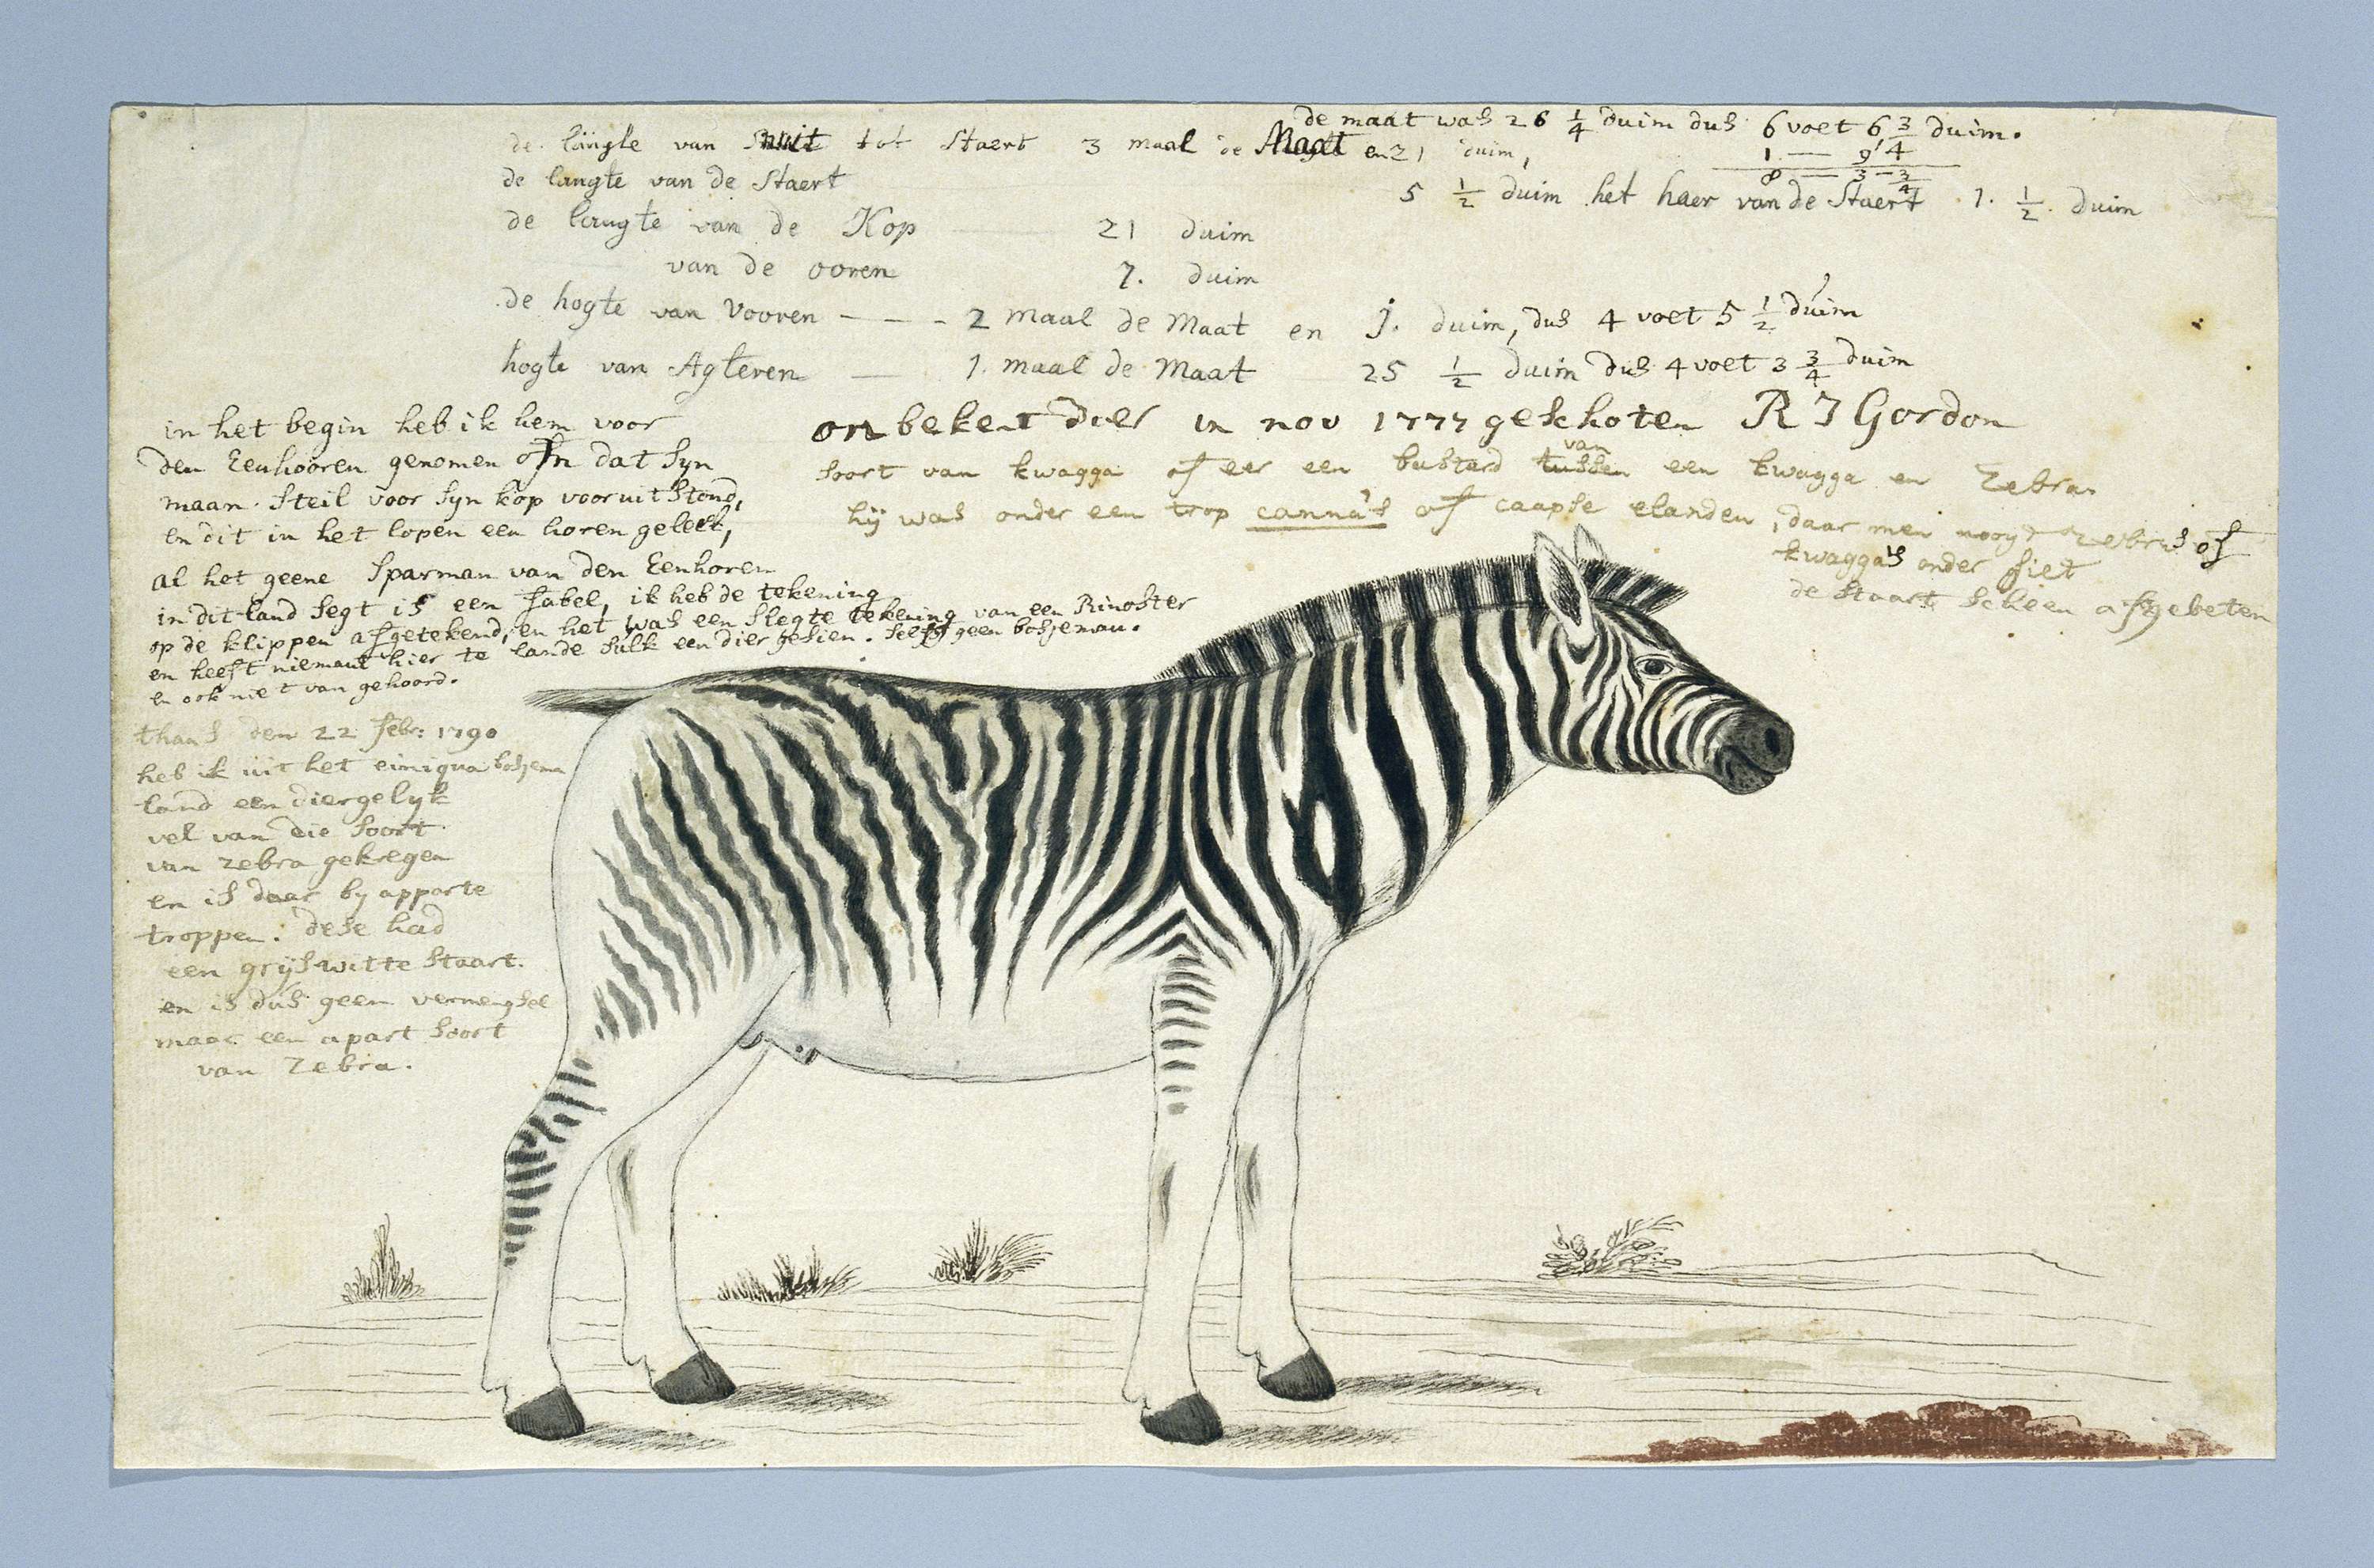 de maat was 26 1/4 duim dus 6 voet 6 3/4 duim.
de lengte van Snuit tot Staert 3 maal de Maat en 21 duim,
1 — 9 4
8 — 3 - 3/4
de langte van de Staert 5 1/2 duim het haer van de Staert 1. 1/2. duim
de langte van de Kop 21 duim
van de ooren 7. duim
de hogte van Vooren - - - 2 maal de Maat en j. duim, dus 4 voet 5 1/2 duim
hogte van Agteren — 1. maal de Maat 25 1/2 duim dus 4 voet 3 3/4 duim
onbekent dier in nov 1777 geschoten R J Gordon
soort van kwagga of eer een bastard tussen van een kwagga en Zebra.
hij was onder een trop canna's of caapse elanden, daar men nooyt zebra's of
kwagga's onder siet
de staart scheen afgebeten
in het begin heb ik hem voor
den Eenhooren genomen om dat syn
maan steil voor syn kop vooruit stond,
en dit in het lopen een horen geleek,
al het geene Sparman van den Eenhoren
in dit land segt is een fabel, ik heb de tekening
op de klippen afgetekend, en het was een slegte tekening van een Rinoster
en heeft niemant hier te lande sulk een dier gesien. selfs geen bosjeman.
en ook niet van gehoord.
thans den 22 febr: 1790
heb ik uit het einiqua bosjema
land een diergelyk
vel van die soort
van zebra gekregen
en is daar by apparte
troppen. dese had
een grijswitte staart.
en is dus geen vermengsel
maar een apart soort
van Zebra.